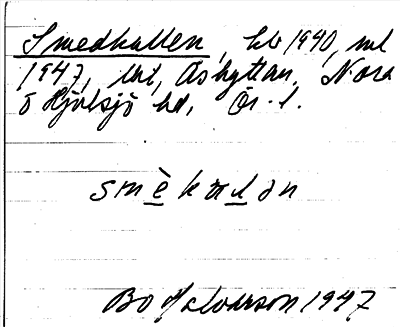 Smedkullen, hb 1940, ml
1947, Åsbyttan, Nora
o Hjulsjö hd, Ör. l.
smèkulən
Bo Halvarson 1947